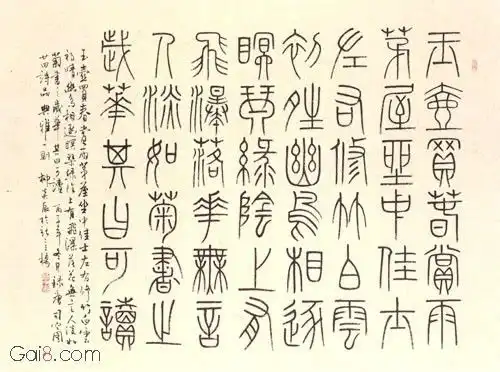 玉壺買春賞雨
茅屋坐中佳士
左右修竹白雲
初晴幽鳥相逐
瞑琴綠陰上有
飛瀑落華無言
人淡如菊書之
歲華其曰可讀
玉壺買春賞雨茅屋坐中佳士左右修竹白雲
初晴幽鳥相逐瞑琴綠陰上有飛瀑落花無言人淡如
菊書之歲華其曰可讀 丙子年冬月錄唐司空圖
廿四詩品典雅一則
Gai8.com